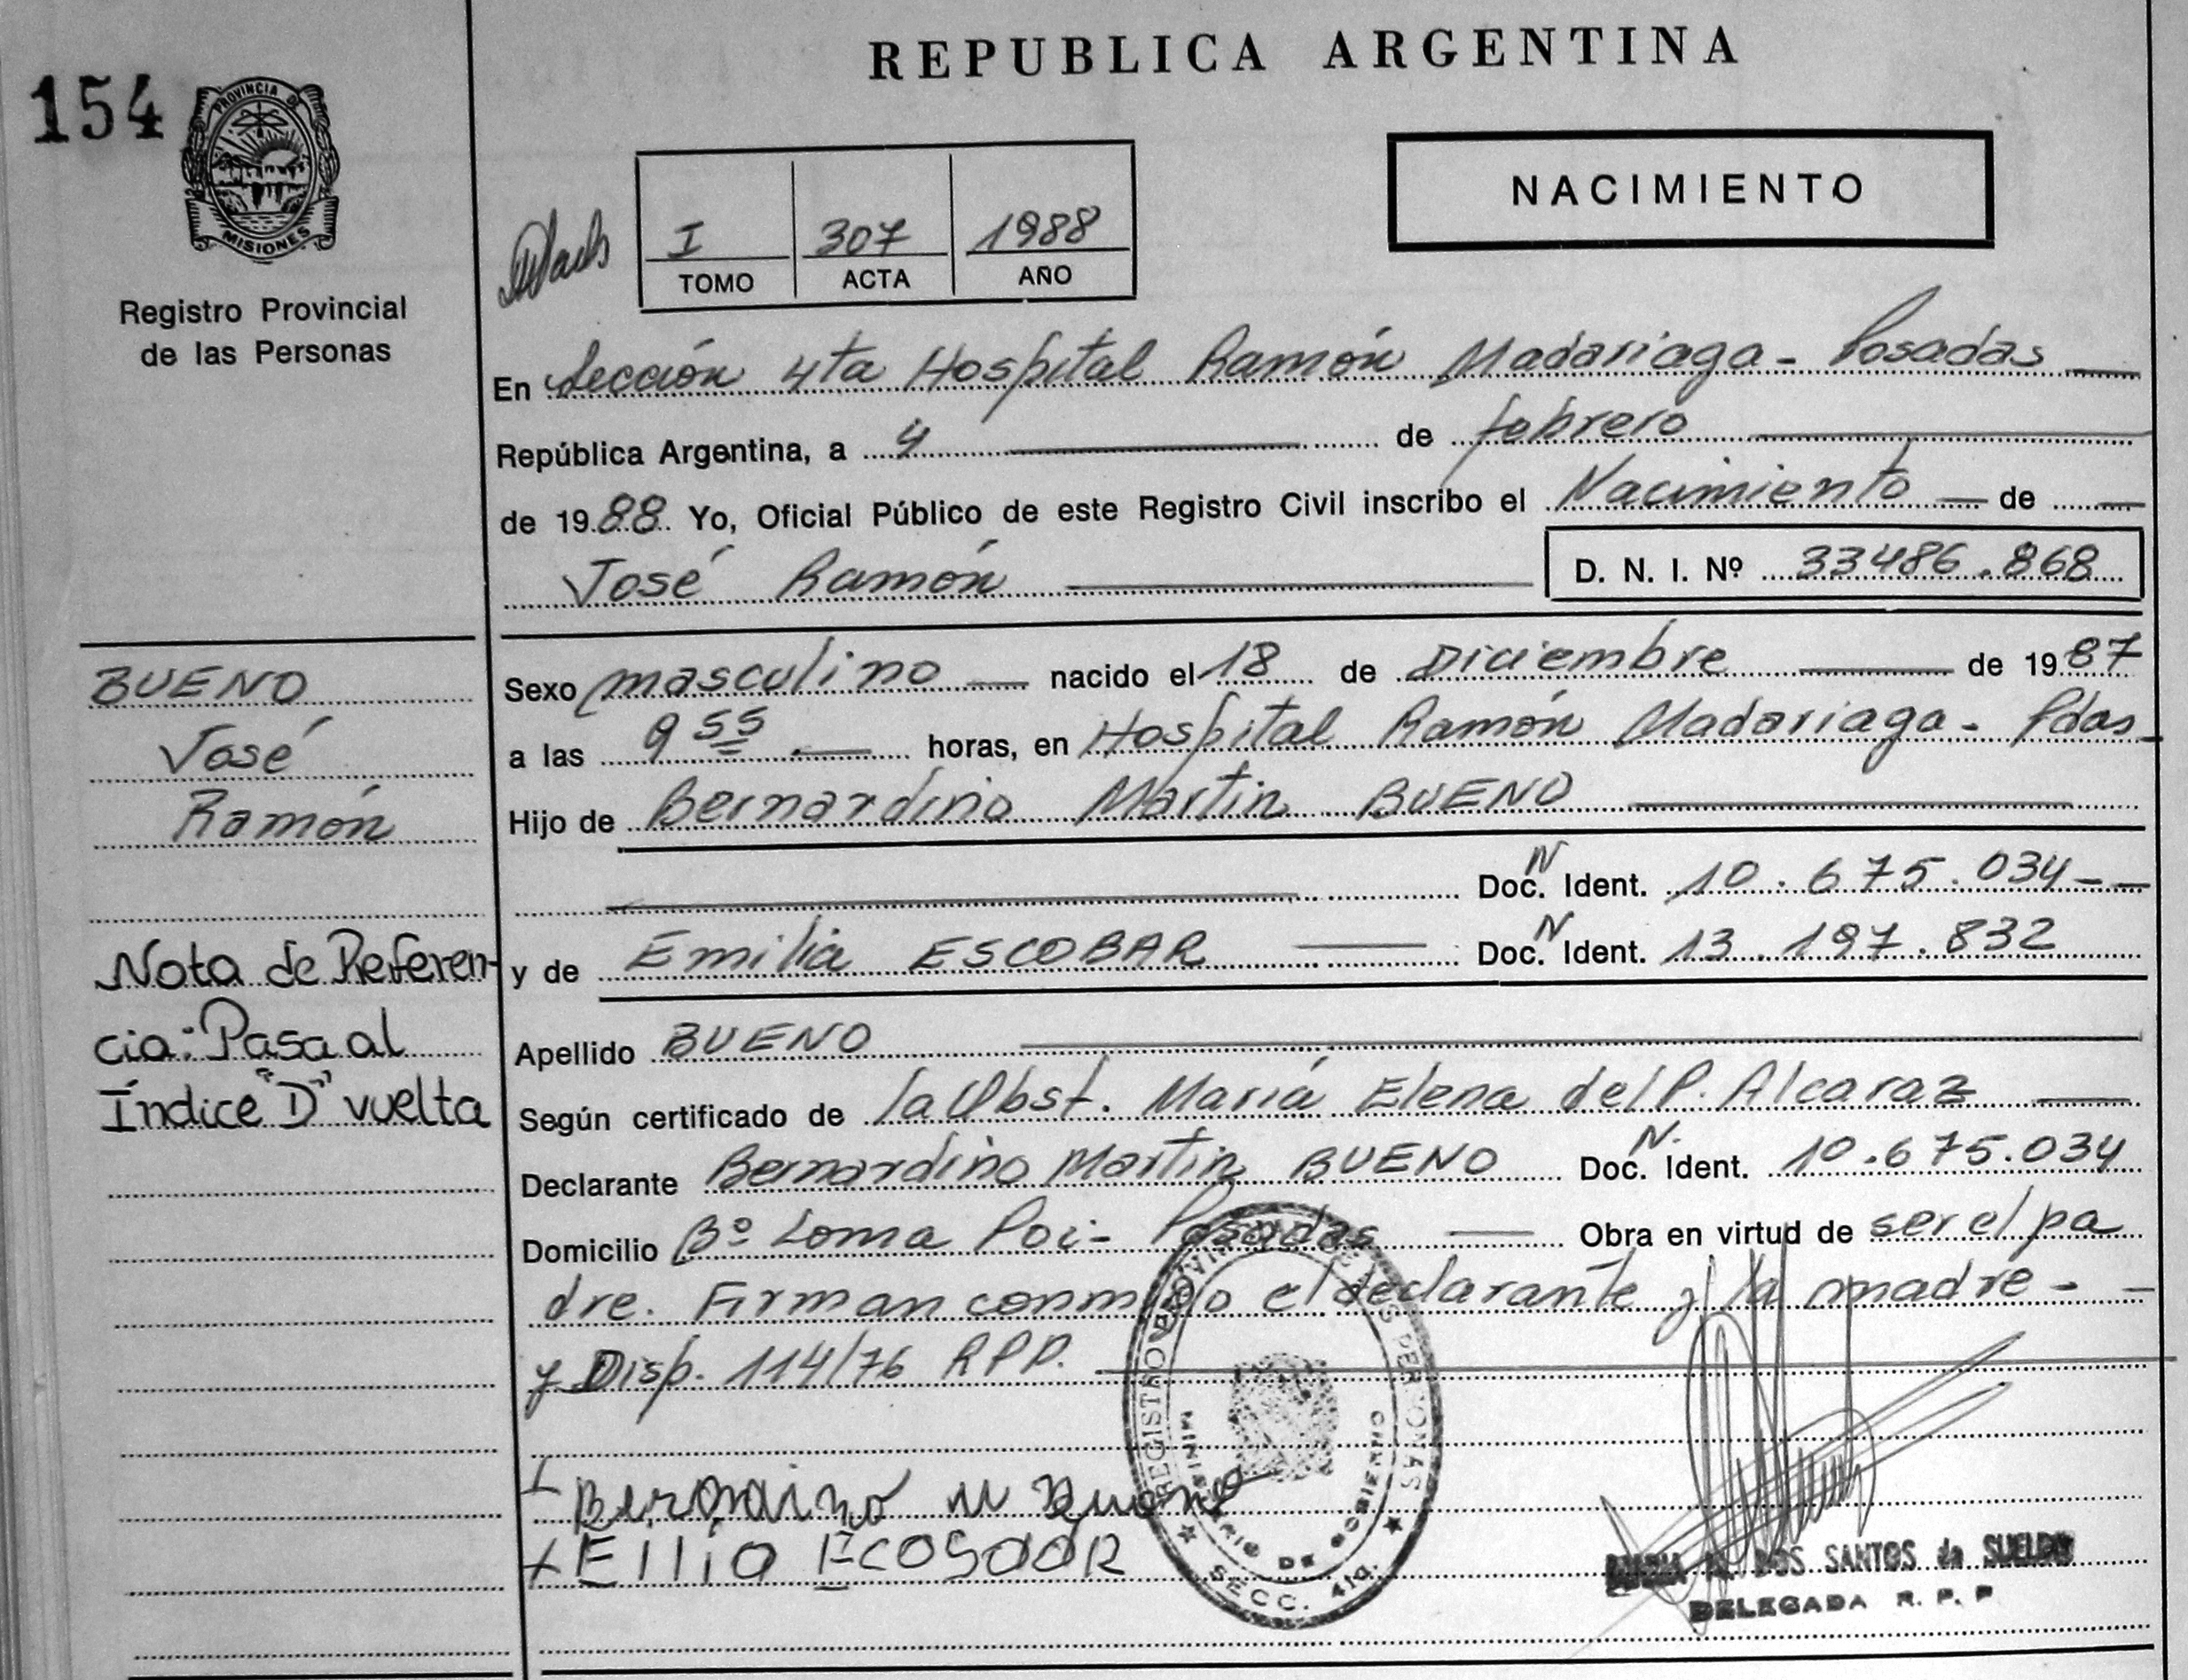 REPUBLICA ARGENTINA
154
PROVINCIA DE
MISIONES
Registro Provincial
de las Personas
I 307 1988
TOMO ACTA AÑO
NACIMIENTO
En Sección 4ta Hospital Ramón Madariaga - Posadas
República Argentina, a 4 de febrero
de 1988 Yo, Oficial Público de este Registro Civil inscribo el Nacimiento de
José Ramón
D. N. I. Nº 33486.868
BUENO
José
Ramón
Nota de Referen-
cia: Pasa al
Índice "D" vuelta
Sexo masculino nacido el 18 de Diciembre de 1987
a las 9 55 horas, en Hospital Ramón Madariaga - Pdas
Hijo de Bernardino Martin BUENO
Doc. N Ident. 10.675.034
y de Emilia ESCOBAR Doc. N Ident. 13.197.832
Apellido BUENO
Según certificado de la Obst. María Elena del P. Alcaraz
Declarante Bernardino Martin BUENO Doc. N. Ident. 10.675.034
Domicilio Bº Loma Poi - Posadas Obra en virtud de ser el pa
dre. Firman conmigo el declarante y la madre -
y Disp. 114/76 RPP.
Bernardino M Bueno
Eilia Ecosoar
REGISTRO PROVINCIAL DE LAS PERSONAS
MINISTERIO DE GOBIERNO
SECC. 4ta.
DOS SANTOS de SUELDO
DELEGADA R. P. P